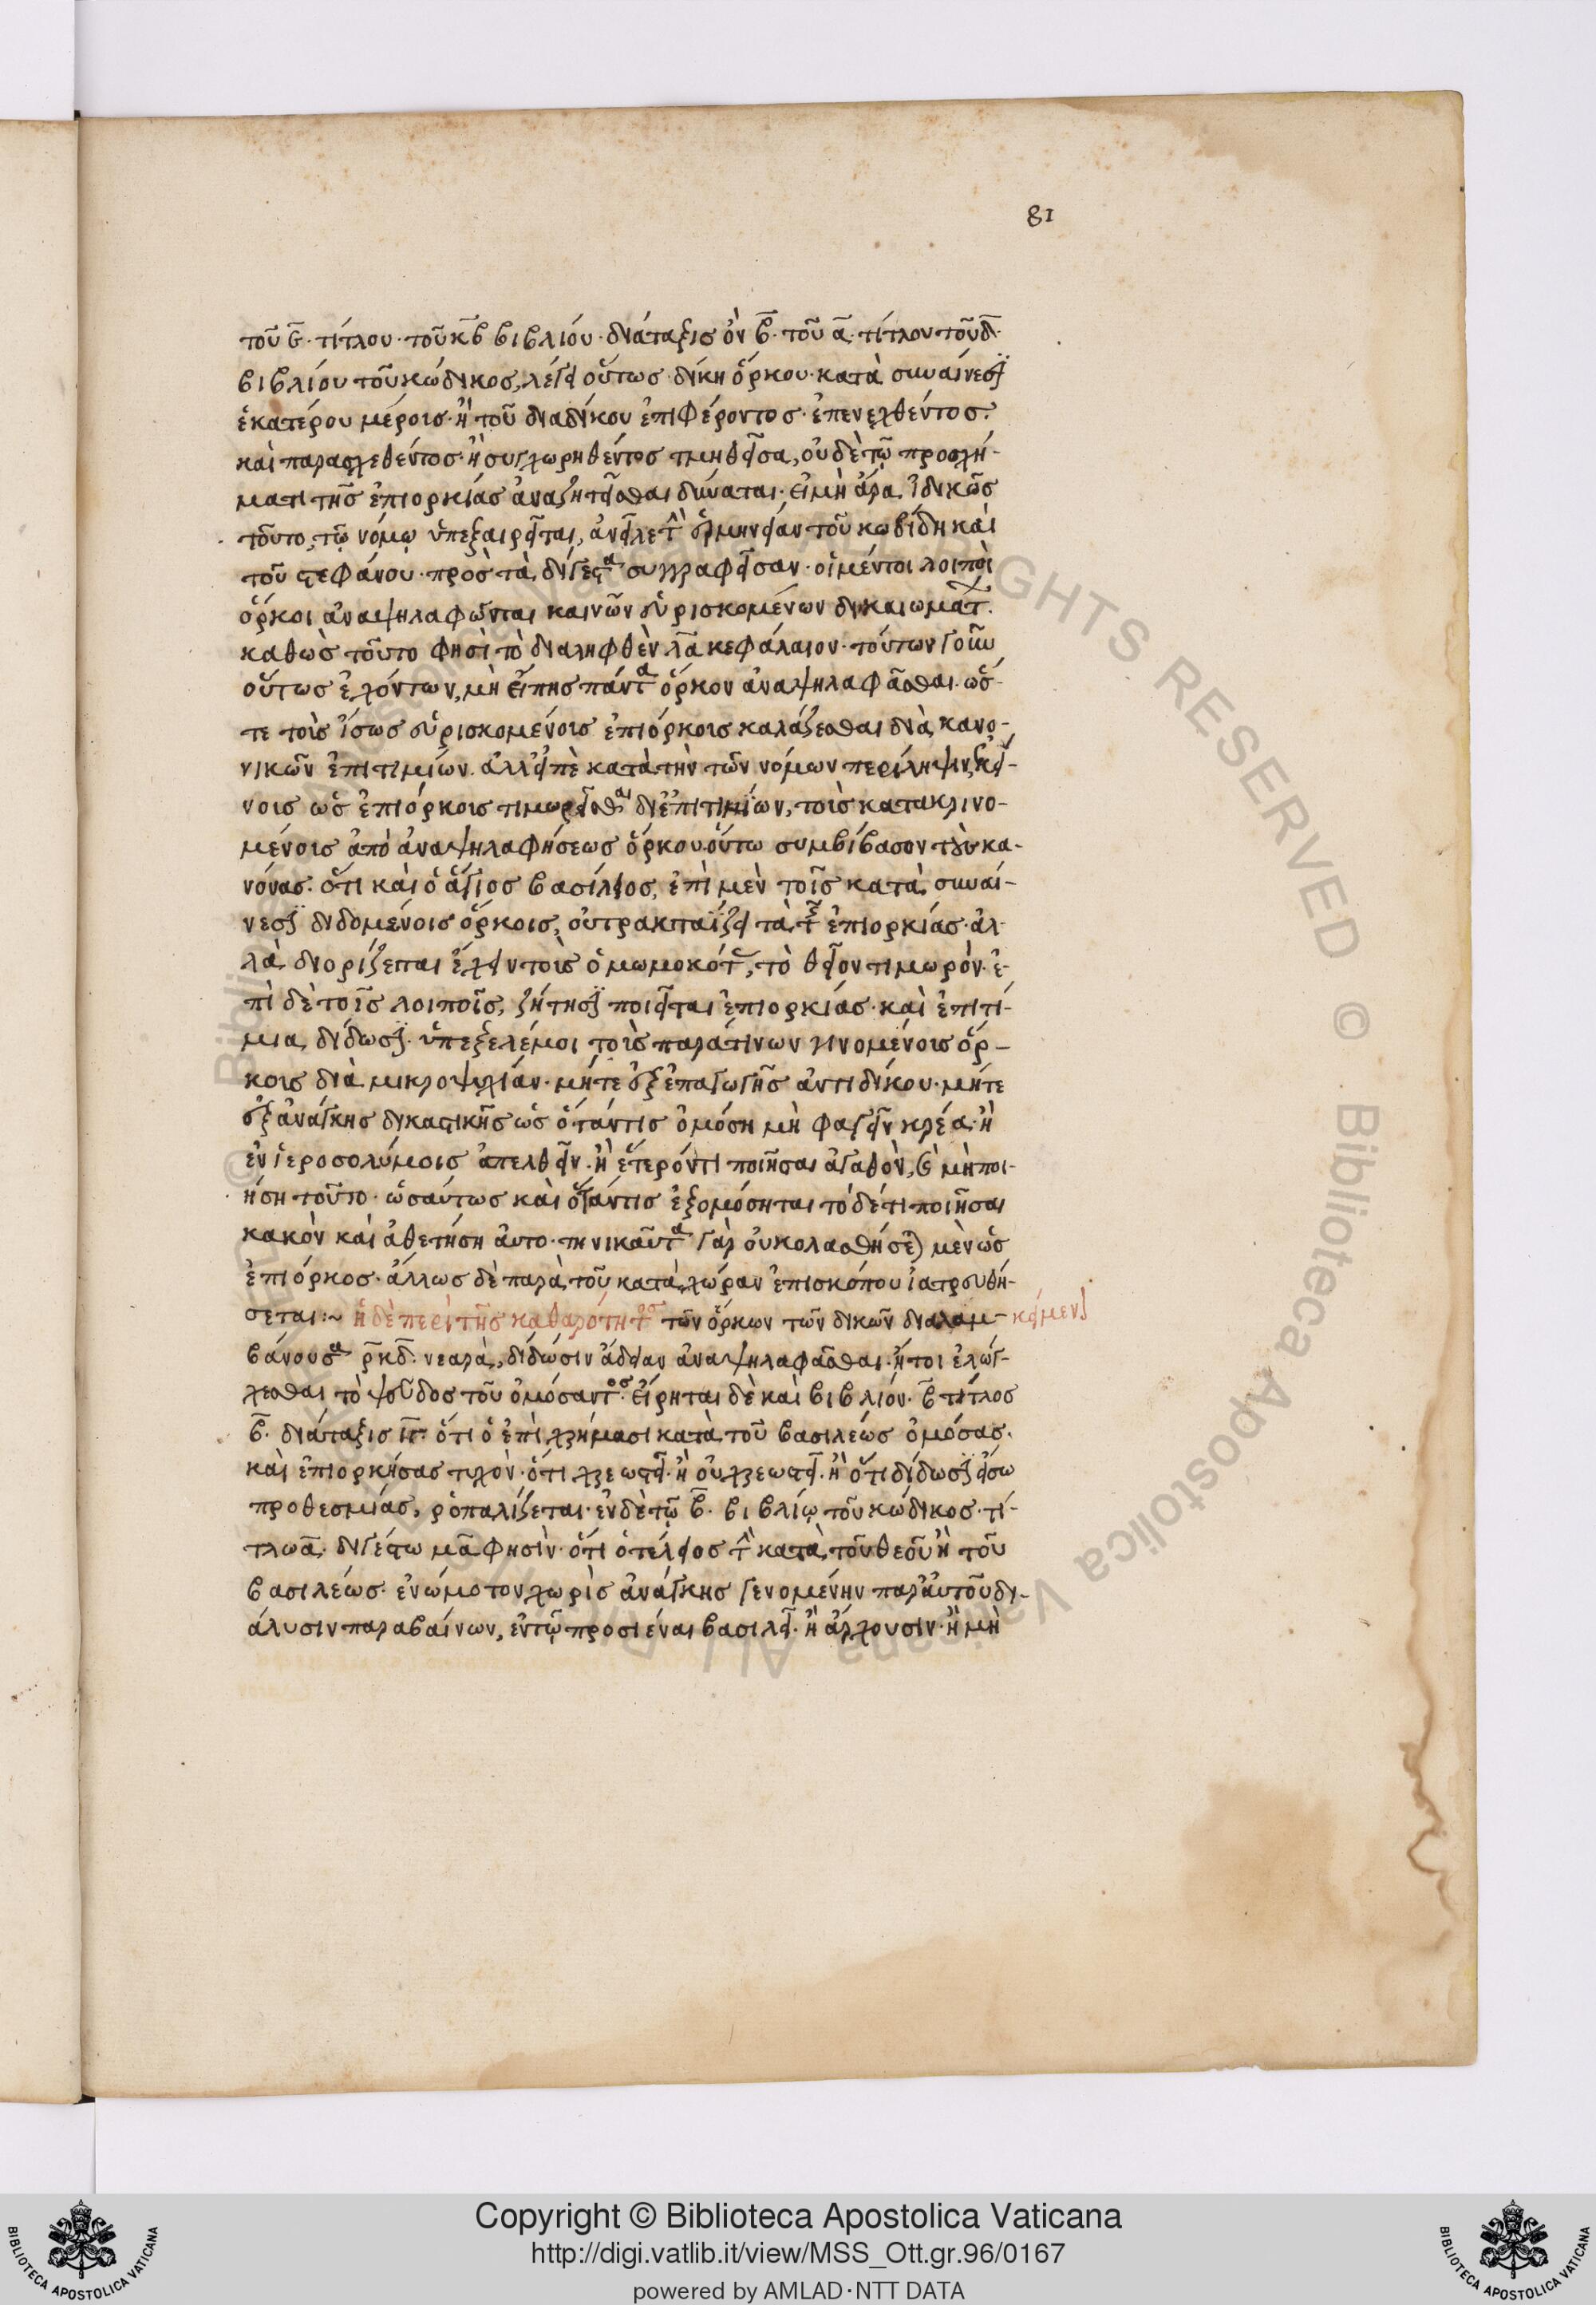 81
τοῦ ϛ̄· τίτλου· τοῦ κ̄β βιβλίου· διάταξις οὖν β̄· τοῦ ᾱ· τίτλου τοῦ δ̄·
βιβλίου τοῦ κώδικος, λέγει οὕτως· δίκη ὅρκου· κατὰ συναίνεσιν
ἑκατέρου μέρους· ἢ τοῦ διαδίκου ἐπιφέροντος· ἐπενεχθέντος·
καὶ παρασχεθέντος· ἢ συγχωρηθέντος τμηθεῖσα, οὐδὲ τῷ προσχή-
ματι τῆς ἐπιορκίας ἀναζητεῖσθαι δύναται· εἰ μὴ ἄρα ἰδικῶς
τοῦτο τῷ νόμῳ ὑπεξαιρεῖται, ἑρμηνείαν τοῦ κωβίδη καὶ
τοῦ στεφάνου· πρὸς τὰ δίγεστα συγγραφεῖσαν· οἱ μέντοι λοιποὶ
ὅρκοι ἀναψηλαφῶνται καινῶν εὑρισκομένων δικαιωμάτων·
καθὼς τοῦτο φησὶ τὸ διαληφθὲν λ̄ᾱ κεφάλαιον· τούτων γοῦν
οὕτως ἐχόντων, μὴ εἴπης πάντα ὅρκον ἀναψηλαφᾶσθαι· ὥσ-
τε τοὺς ἴσως εὑρισκομένους ἐπιόρκους κολάζεσθαι διὰ κανο-
νικῶν ἐπιτιμίων· ἀλλ' εἰπὲ κατὰ τὴν τῶν νόμων περίληψιν, ἐκεί-
νους ὡς ἐπιόρκους τιμωρεῖσθαι δι' ἐπιτιμίων, τοὺς κατακρινο-
μένους ἀπὸ ἀναψηλαφήσεως ὅρκου· οὕτω συμβίβασον τοὺς κα-
νόνας· ὅτι καὶ ὁ ἅγιος βασίλειος, ἐπὶ μὲν τοῖς κατὰ συναί-
νεσιν διδομένοις ὅρκοις, οὐ τρακταΐζει τὰ τῆς ἐπιορκίας· ἀλ-
λὰ διορίζεται ἔχειν τοὺς ὀμωμοκότας, τὸ θεῖον τιμωρόν· ἐ-
πὶ δὲ τοῖς λοιποῖς, ζήτησιν ποιεῖται ἐπιορκίας· καὶ ἐπιτί-
μια δίδωσιν· ὑπεξελέ μοι τοὺς παρά τινων γινομένους ὅρ-
κους διὰ μικροψυχίαν· μήτε ἐξ ἐπαγωγῆς ἀντιδίκου· μήτε
ἐξ ἀνάγκης δικαστικῆς ὡς ὅταν τις ὀμόση μὴ φαγεῖν κρέα· ἢ
ἐν ἱεροσολύμοις ἀπελθεῖν· ἢ ἕτερόν τι ποιῆσαι ἀγαθὸν, καὶ μὴ ποι-
ήση τοῦτο· ὡσαύτως καὶ ὅταν τις ἐξομόσηται τόδέ τι ποιῆσαι
κακὸν καὶ ἀθετήση αὐτο· τηνικαῦτα γὰρ οὐ κολασθήσεται μὲν ὡς
ἐπίορκος· ἄλλως δὲ παρὰ τοῦ κατὰ χώραν ἐπισκόπου ἰατρευθή-
σεται:~ ἡ δὲ περὶ τῆς καθαρότητος τῶν ὅρκων τῶν δικῶν διαλαμ- κείμενον
βάνουσα ρ̄κ̄δ̄· νεαρὰ, δίδωσιν ἄδειαν ἀναψηλαφᾶσθαι· ἤτοι ἐλέγ-
χεσθαι τὸ ψεῦδος τοῦ ὀμόσαντος· εἴρηται δὲ καὶ βιβλίον· β̄ τίτλος
β̄· διάταξις ῑγ̄· ὅτι ὁ ἐπὶ χρήμασι κατὰ τοῦ βασιλέως ὀμόσας·
καὶ ἐπιορκήσας τυχὸν· ὅτι χρεωστεῖ· ἢ οὐ χρεωστεῖ· ἢ ὅτι δίδωσιν εἴσω
προθεσμίας, ῥοπαλίζεται· ἐν δὲ τῷ β̄· βιβλίῳ τοῦ κώδικος· τί-
τλω ᾱ· διγέστω μ̄ᾱ φησὶν· ὅτι ὁ τέλειος τὴν κατὰ τοῦ θεοῦ ἢ τοῦ
βασιλέως· ἐνώμοτον χωρὶς ἀνάγκης γενομένην παρ' αὐτοῦ δι-
άλυσιν παραβαίνων, ἐν τῷ προσιέναι βασιλεῖ· ἢ ἄρχουσιν· ἢ μὴ
Copyright © Biblioteca Apostolica Vaticana
http://digi.vatlib.it/view/MSS_Ott.gr.96/0167
powered by AMLAD·NTT DATA